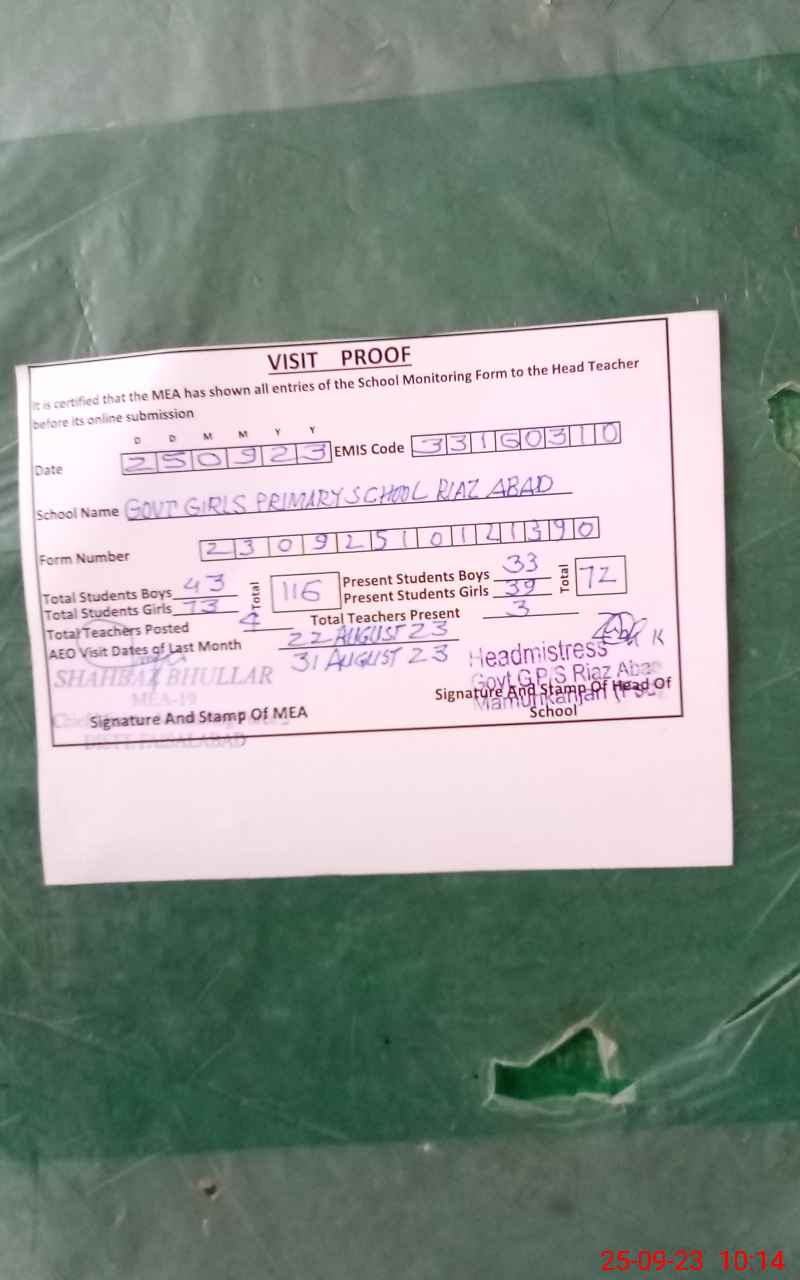 VISIT PROOF
It is certified that the MEA has shown all entries of the School Monitoring Form to the Head Teacher
before its online submission
D D M M Y Y
Date 250923 EMIS Code 33160310
School Name GOVT GIRLS PRIMARY SCHOOL RIAZ ABAD
Form Number 23092510121390
Total Students Boys 43 Total 116 Present Students Boys 33 Total 72
Total Students Girls 73 Present Students Girls 39
Total Teachers Posted 4 Total Teachers Present 3
AEO Visit Dates of Last Month 22 AUGUST 23
31 AUGUST 23
SHAHBAZ BHULLAR
MEA-19
DISTT. FAISALABAD
Signature And Stamp Of MEA
Headmistress
Govt G.P/S Riaz Abad
Mamunkanjan
Signature And Stamp Of Head Of
School
25-09-23 10:14